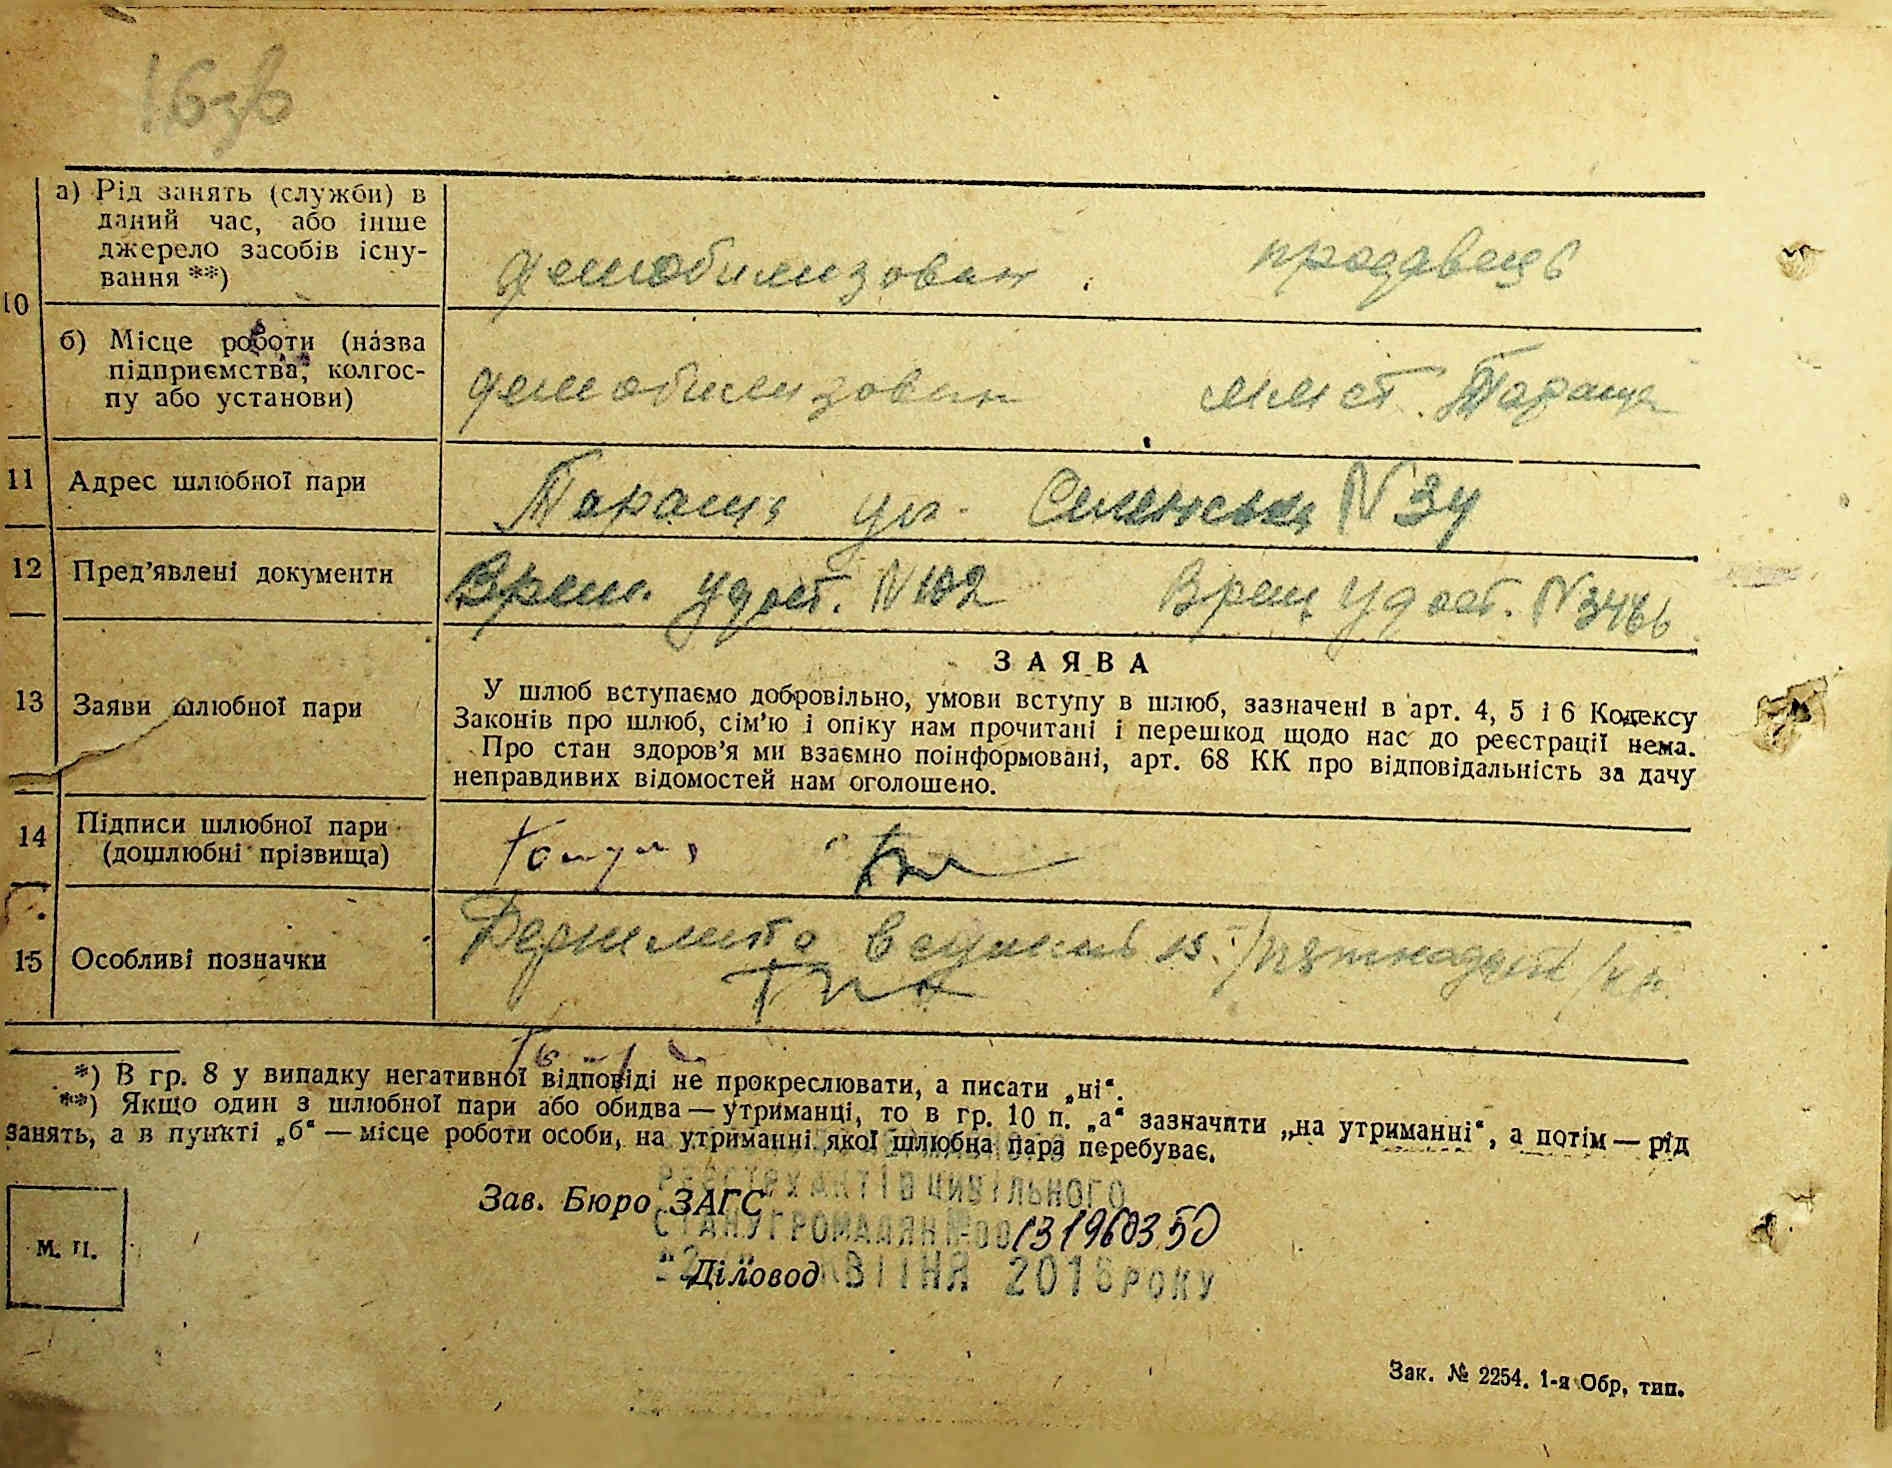 а) Рід занять (служби) в
даний час, або інше
джерело засобів існу-
вання **)
демобилизован продавець
10
б) Місце роботи (назва
підприємства, колгос-
пу або установи)
демобилизован Тараща
11 Адрес шлюбної пари
Тараща ул. N 34
12 Пред’явлені документи
Врем. удост. N 102 Врем удост. N 3466
ЗАЯВА
13 Заяви шлюбної пари
У шлюб вступаємо добровільно, умови вступу в шлюб, зазначені в арт. 4, 5 і 6 Кодексу
Законів про шлюб, сім’ю і опіку нам прочитані і перешкод щодо нас до реєстрації нема.
Про стан здоров’я ми взаємно поінформовані, арт. 68 КК про відповідальність за дачу
неправдивих відомостей нам оголошено.
14 Підписи шлюбної пари
(дошлюбні прізвища)
15 Особливі позначки
15.
*) В гр. 8 у випадку негативної відповіді не прокреслювати, а писати „ні“.
**) Якщо один з шлюбної пари або обидва — утриманці, то в гр. 10 п. „а“ зазначити „на утриманні“, а потім — рід
занять, а в пункті „б“ — місце роботи особи, на утриманні якої шлюбна пара перебуває.
РЕЄСТРУ АКТІВ ЦИВІЛЬНОГО
Зав. Бюро ЗАГС
СТАНУ ГРОМАДЯН № 00131960350
М. П.
Діловод
КВІТНЯ 2016 РОКУ
Зак. № 2254. 1-я Обр. тип.